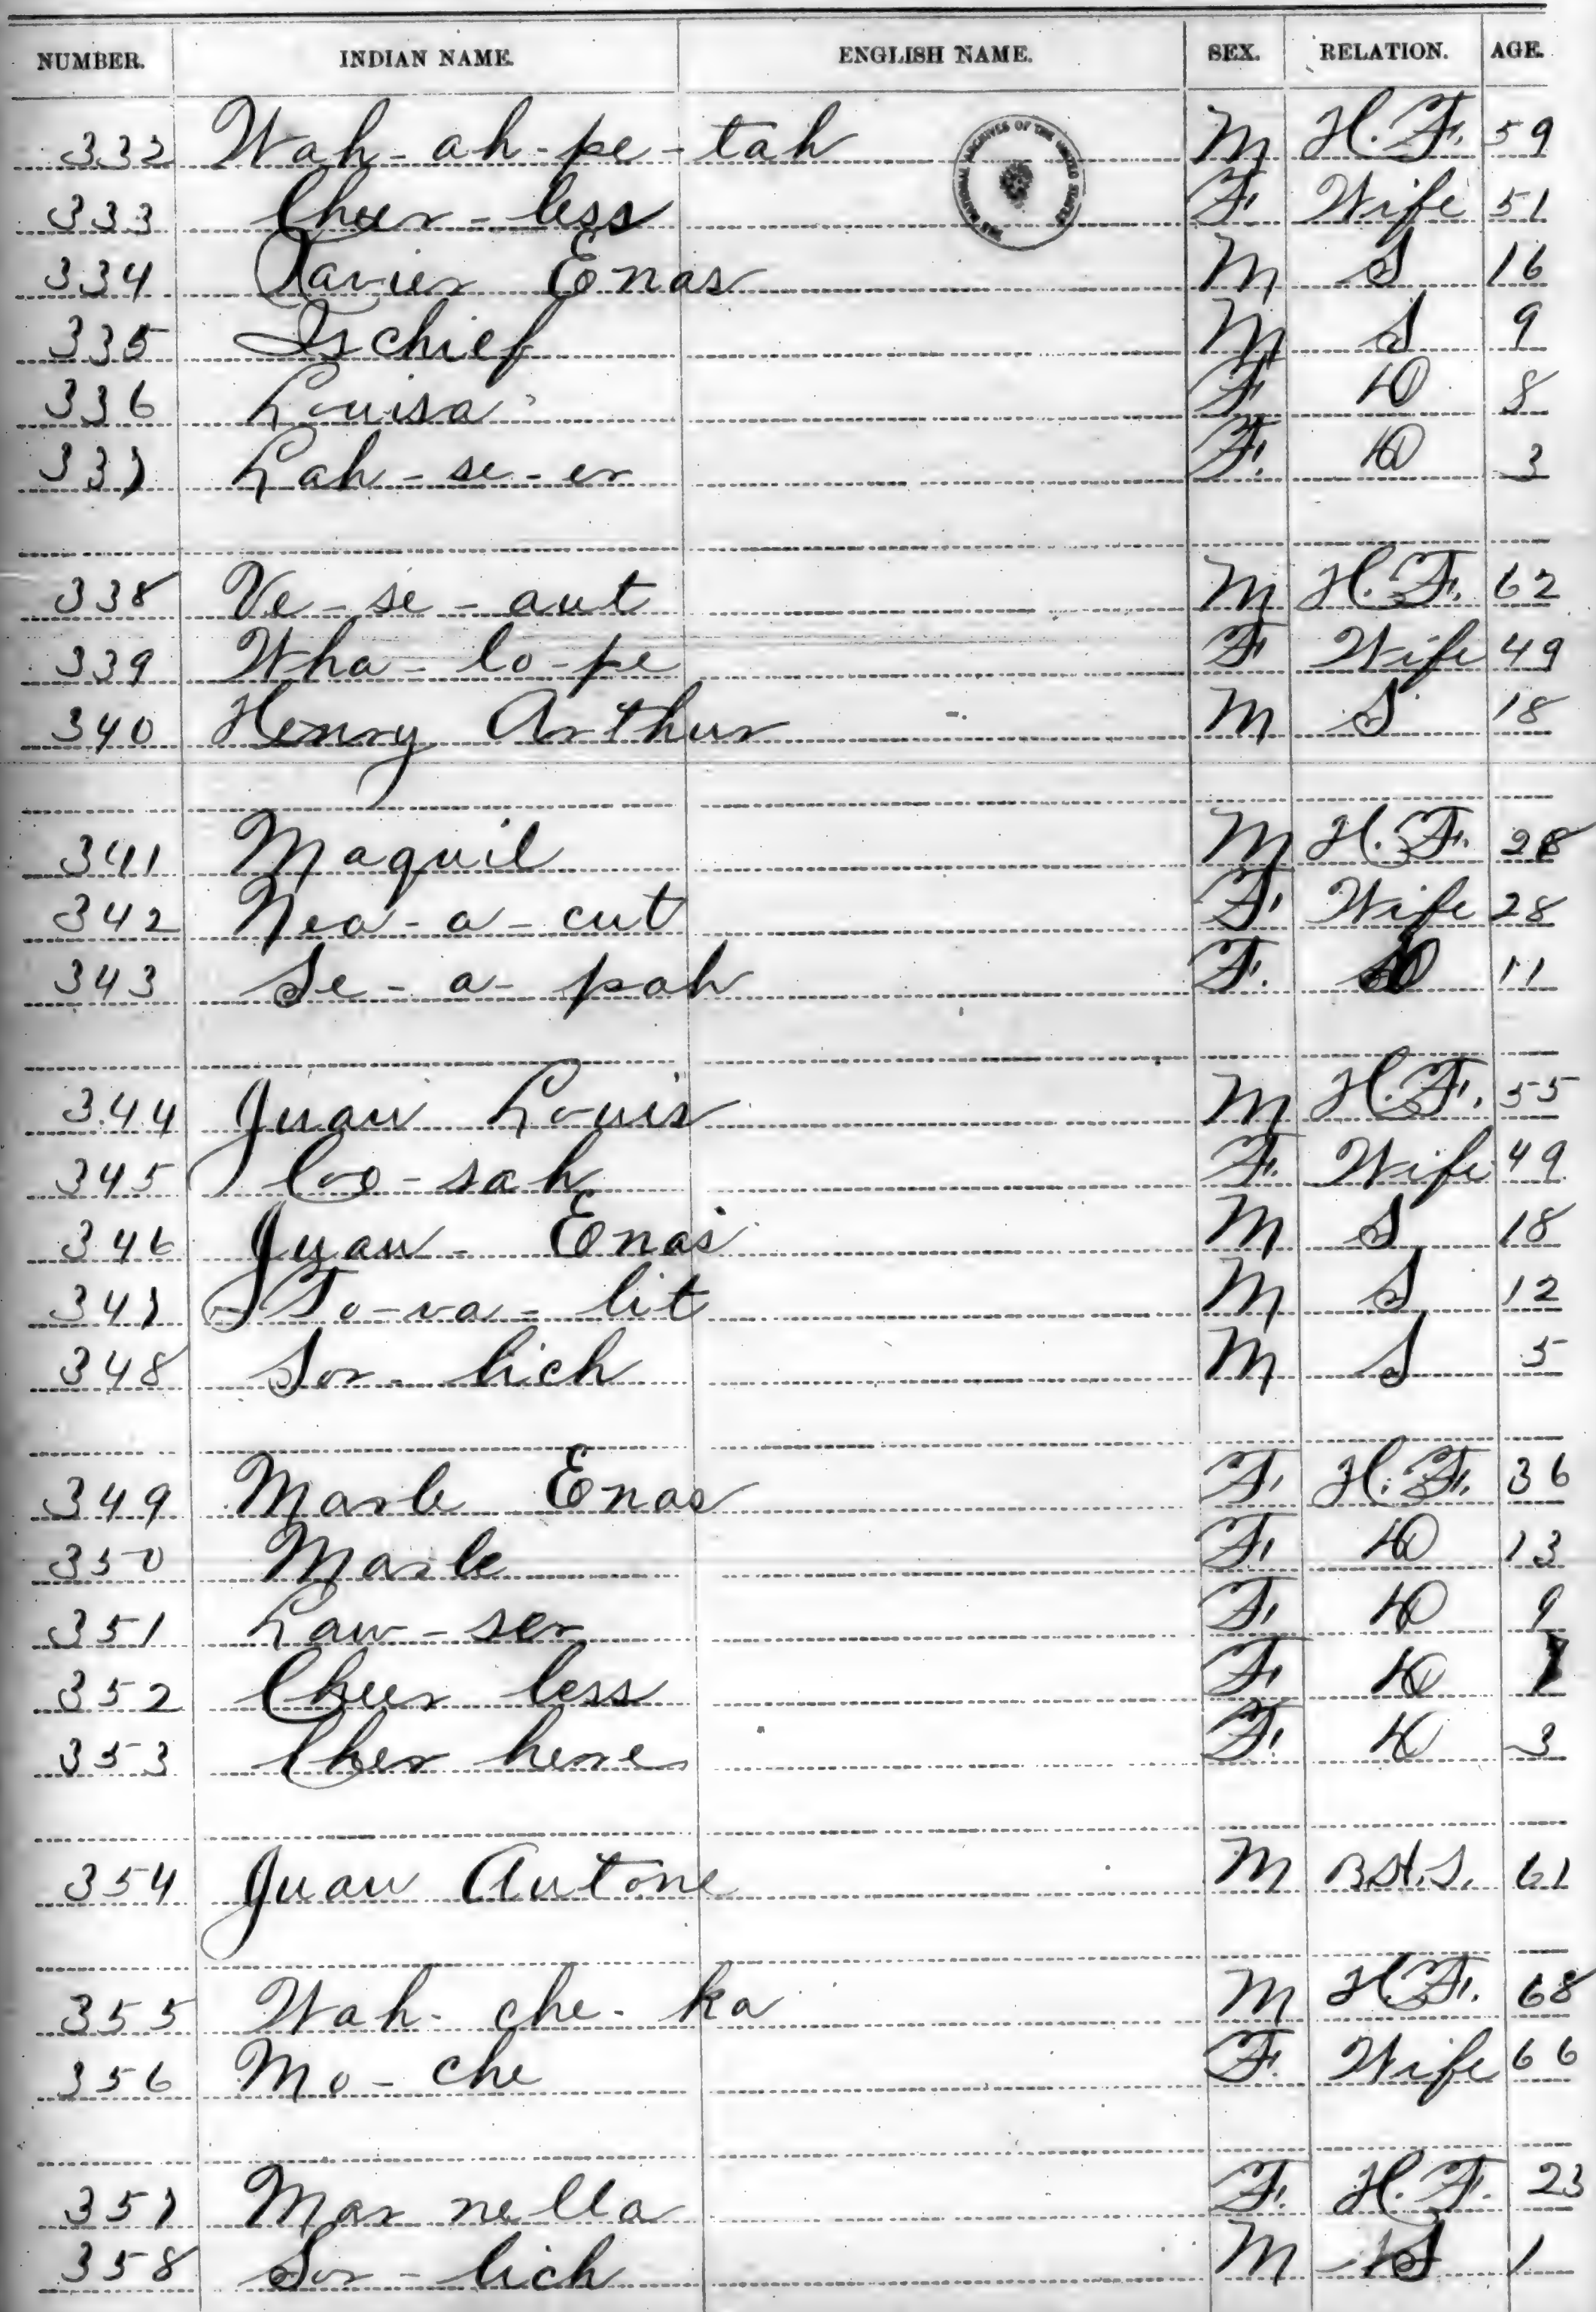 NUMBER. INDIAN NAME. ENGLISH NAME. SEX. RELATION. AGE.
332 Wah-ah-pe-tah M H.F. 59
THE NATIONAL ARCHIVES OF THE UNITED STATES
333 Chur-less F. Wife 51
334 Xavier Enas M S 16
335 Ischief M S 9
336 Louisa F D 8
337 Lah-se-er F. D 3
338 Ve-se-aut M H.F. 62
339 Wha-lo-pe F Wife 49
340 Henry Arthur M S 18
341 Maquil M H.F. 28
342 Nea-a-cut F. Wife 28
343 Se-a-pah F. D 11
344 Juan Louis M H.F. 55
345 Coo-sah F. Wife 49
346 Juan-Enas M S 18
347 To-va-lit M S 12
348 Sor-lich M S 5
349 Marle Enas F. H.F. 36
350 Marle F. D 13
351 Law-ser F. D 9
352 Chur less F. D
353 Cher here F. D 3
354 Juan Antone M 61
355 Wah-che-ka M H.F. 68
356 Mo-che F. Wife 66
357 Mar nella F. H.F. 23
358 Sor-lich M S 1